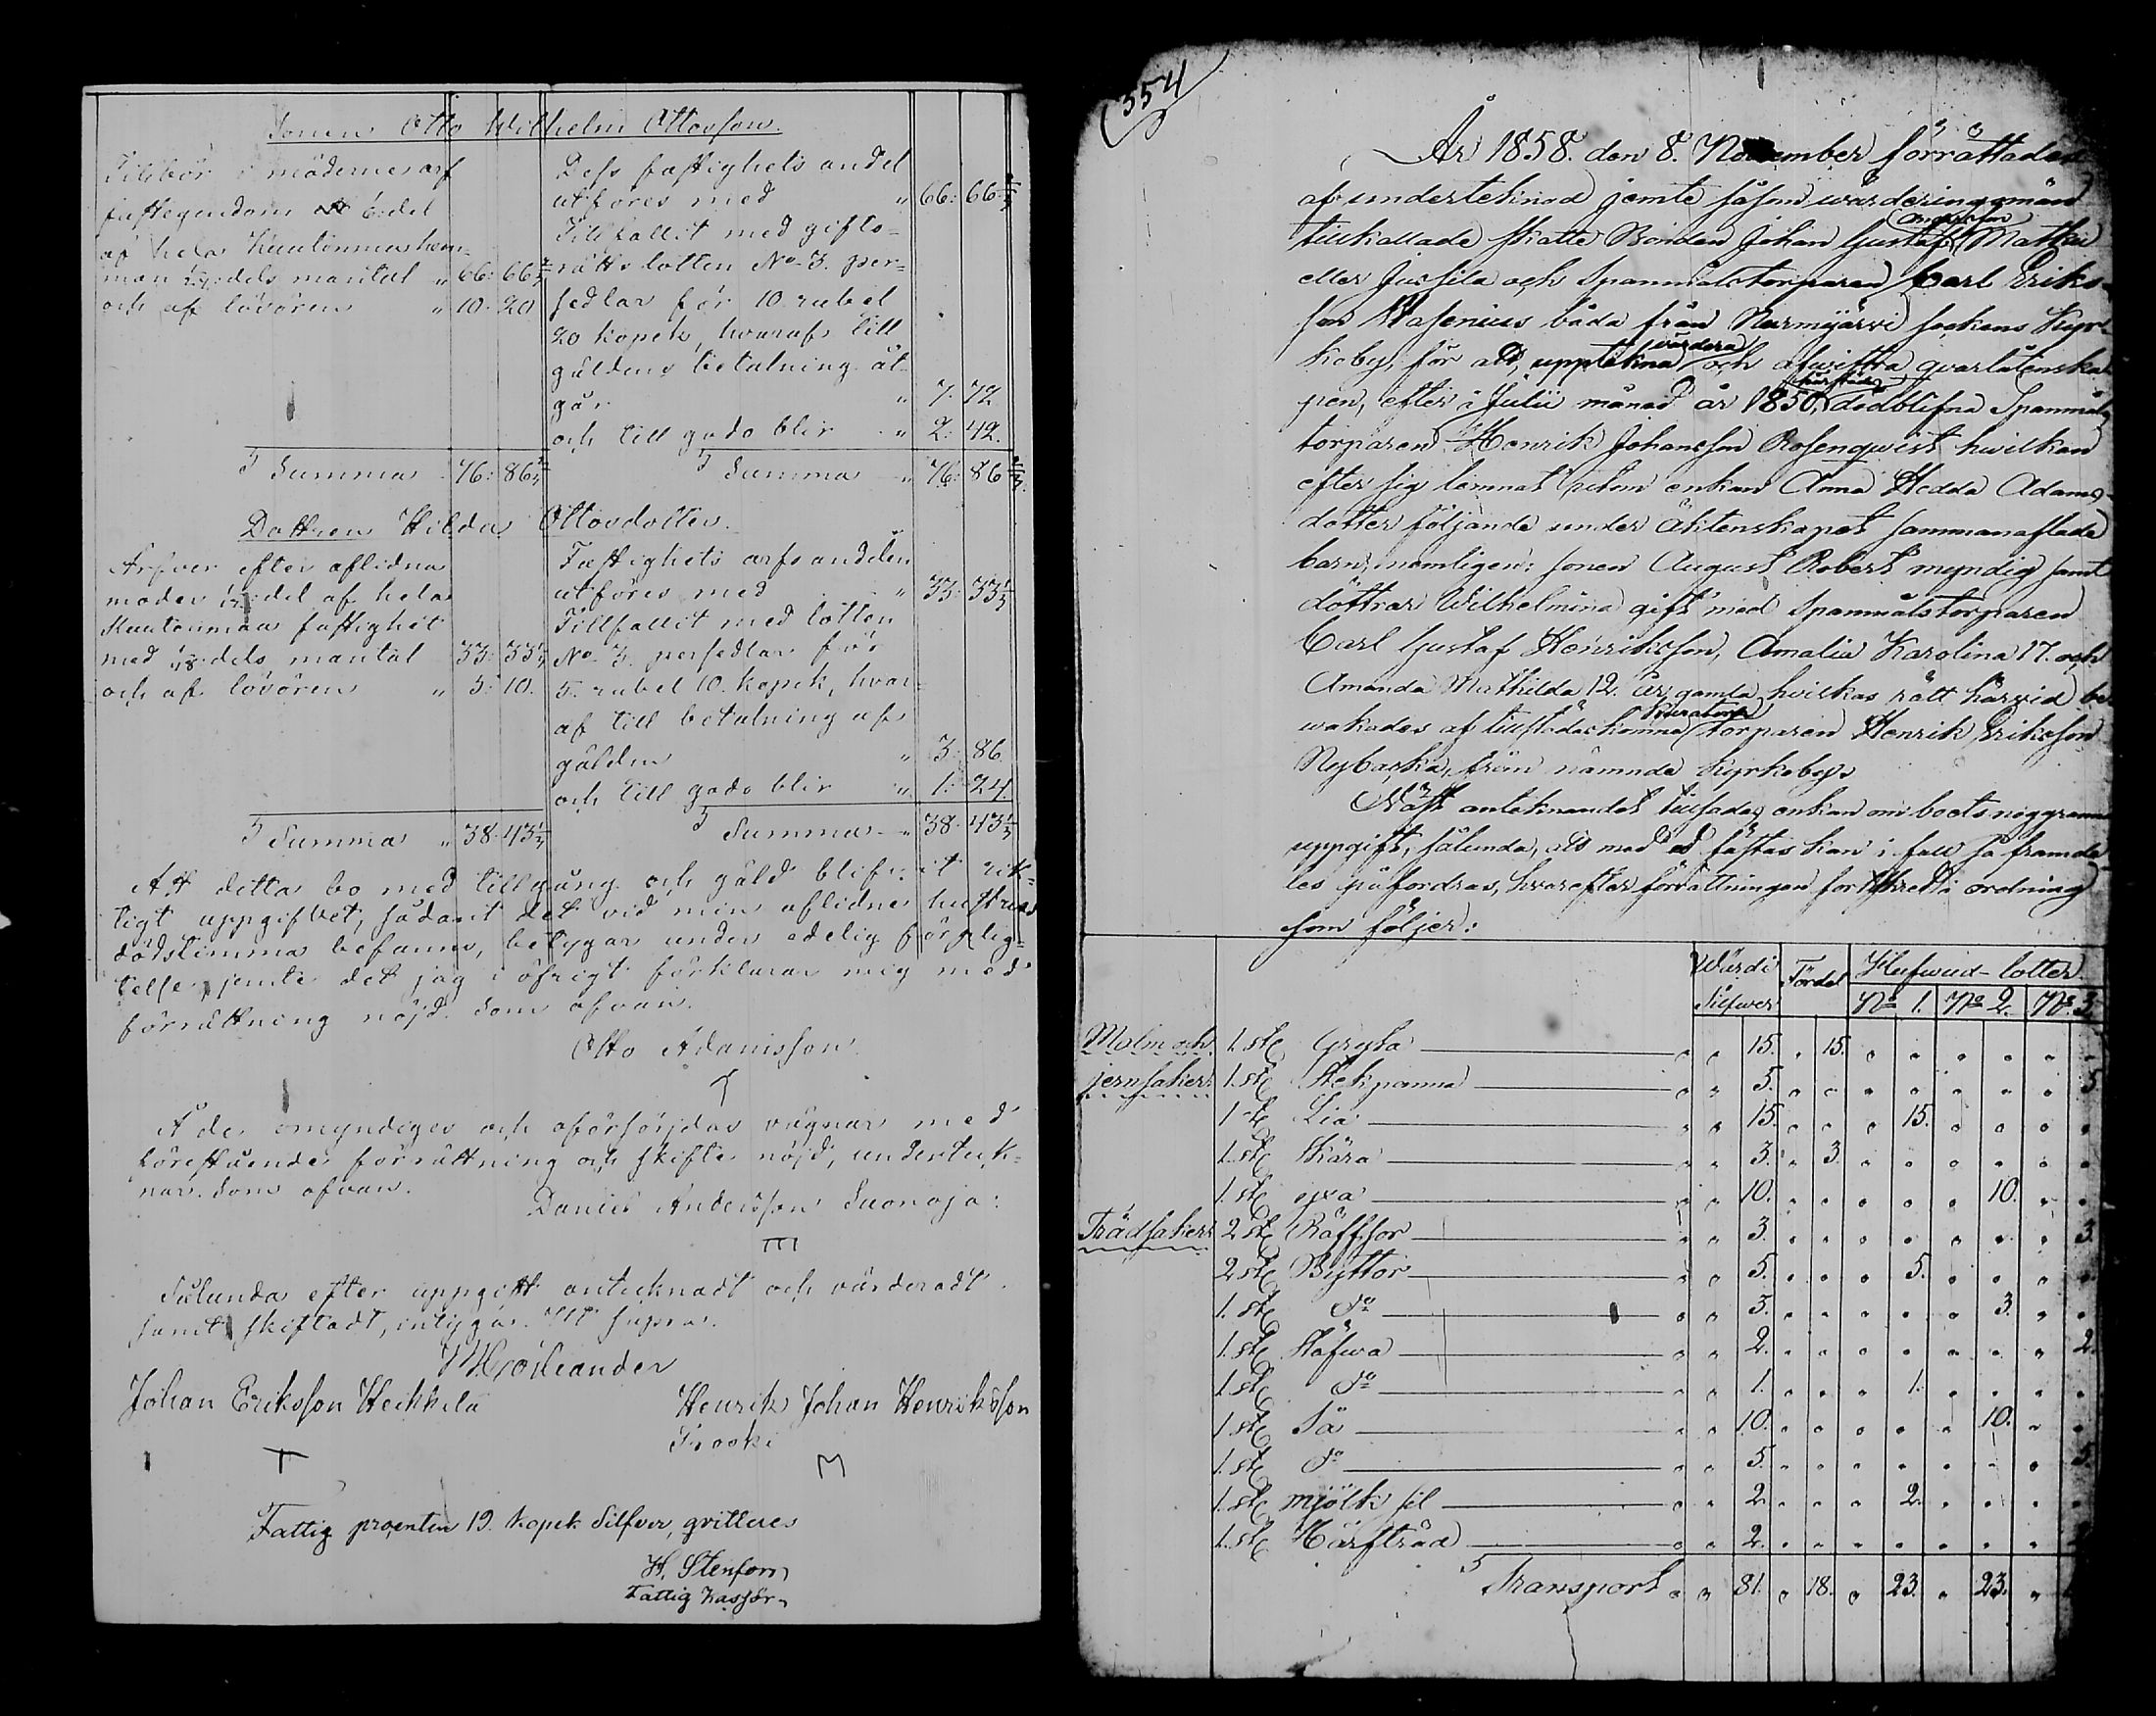 Sonen Otto Wilhelm Ottosson.
Tillbör i mödernearf
fastegendom 6:del
af hela Kuutinmaa hem-
man dels mantal " 66: 66 2/3
och af lösören " 10. 20
Summa 76: 86 2/3
Dess fastighets andel
utföres med " 66: 66 2/3
Tillfallit med gifto-
rätts lotten No 3. per-
sedlar för 10 rubel
20 kopek, hvaraf till
gäldens betalning åt-
går " 7. 72
och till godo blir " 2: 42.
Summa " 76: 86 2/3
Dottren Hilda Ottosdotter.
Arfver efter aflidna
moder 12 del af hela
Kuutinmaa fastighet
med dels mantal 33: 33 1/3
och af lösören " 5: 10.
Summa " 38. 43 1/3
Fastighets arfsandelen
utföres med " 33: 33 1/3
Tillfallit med lotten
No 3. persedlar för
5. rubel 10. kopek, hvar-
af till betalning af
gälden " 3: 86
och till godo blir " 1: 24.
Summa " 38. 43 1/3
Att detta bo med tillgång och gäld blifvit rik-
tigt uppgifvet, sådant det vid min aflidne hustrus
dödstimma befanns, betygar under edelig förplig-
telse, jemte det jag i öfrigt förklarar mig med
förrättning nöjd. Som ofvan.
Otto Adamsson
Å de omyndiges och oförsörjdas vägnar med
förestående förrättning och skifte nöjd, underteck-
nar. Som ofvan.
Daniel Andersson Suonoja:
Sålunda efter uppgift antecknadt och värderadt
samt skiftadt, intygar. Ut supra.
Johan Eriksson Heikkilä Henrik Johan Henriksson
Prooki
Fattig procenten 19. kopek Silfver, qvitteres
H. Stenfors
Fattig Kassör
354
År 1858. den 8. November förrättades
af undertecknad jemte såsom wärderingsmän
tillkallade Skatte Bonden Johan Gustaf Andersson Mattei
eller Jussila och Spannmålstorparen Carl Eriks-
son Wasenius båda från Nurmijärvi sockens Kyr-
koby, för att, uppteckna värdera och afwittra qvarlåtenska-
pen, efter i Julii månad år 1850, härstädes dödblifne Spannmåls
torparen Henrik Johansson Rosenqwist hwilken
efter sig lemnat utom enkan Anna Hedda Adams-
dotter följande under äktenskapet sammanaflade
barn, nemligen: sonen August Robert myndig samt
döttrar Wilhelmina gift med Spannmålstorparen
Carl Gustaf Henriksson, Amalia Karolina 17. och
Amanda Mathilda 12. år gamla hvilkas rätt härvid be-
wakades af tillstädeskomna Kuratorn torparen Henrik Eriksson
Nybacka, från nämnde Kyrkoby.
Näst antecknandet tillsades enkan om boets noggranna
uppgift, sålunda, att med ed fästas kan i fall så framde-
les påfordras, hvarefter förrättningen fortskred i ordning
som följer:
Wärde Silfwer Fördel Hufwud-lotter
No 1. No 2. No 3.
Malm och 1. st. Gryta " " 15. " 15. " " " " " "
jernsaker 1. st. Stekpanna " " 5. " " " " " " " 5.
1 st. Lia " " 15. " " " 15. " " " "
1. st. Skära " " 3. " 3. " " " " " "
1. st. yxa " " 10. " " " " " 10. " "
Trädsaker 2 st. Räffsor " " 3. " " " " " " " 3.
2 st. Byttor " " 5. " " " 5. " " " "
1. st. Do " " 3. " " " " " 3. " "
1. st. Stäfwa " " 2. " " " " " " " 2.
1. st. Do " " 1. " " " 1. " " " "
1. st. Så " " 10. " " " " " 10. " "
1. st. Do " " 5. " " " " " " " 5.
1. st. mjölk sil " " 2. " " " 2. " " " "
1. st. Härfträd " " 2. " " " " " " "
Transport " " 81. " 18. " 23. " 23. "